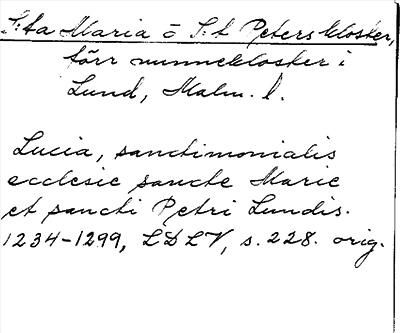 S:ta Maria o S:t Peters kloster,
förr nunnekloster i
Lund, Malm. l.
Lucia, sanctimonialis
ecclesie sancte Marie
et sancti Petri Lundis.
1234-1299, LDLV, s. 228. orig.